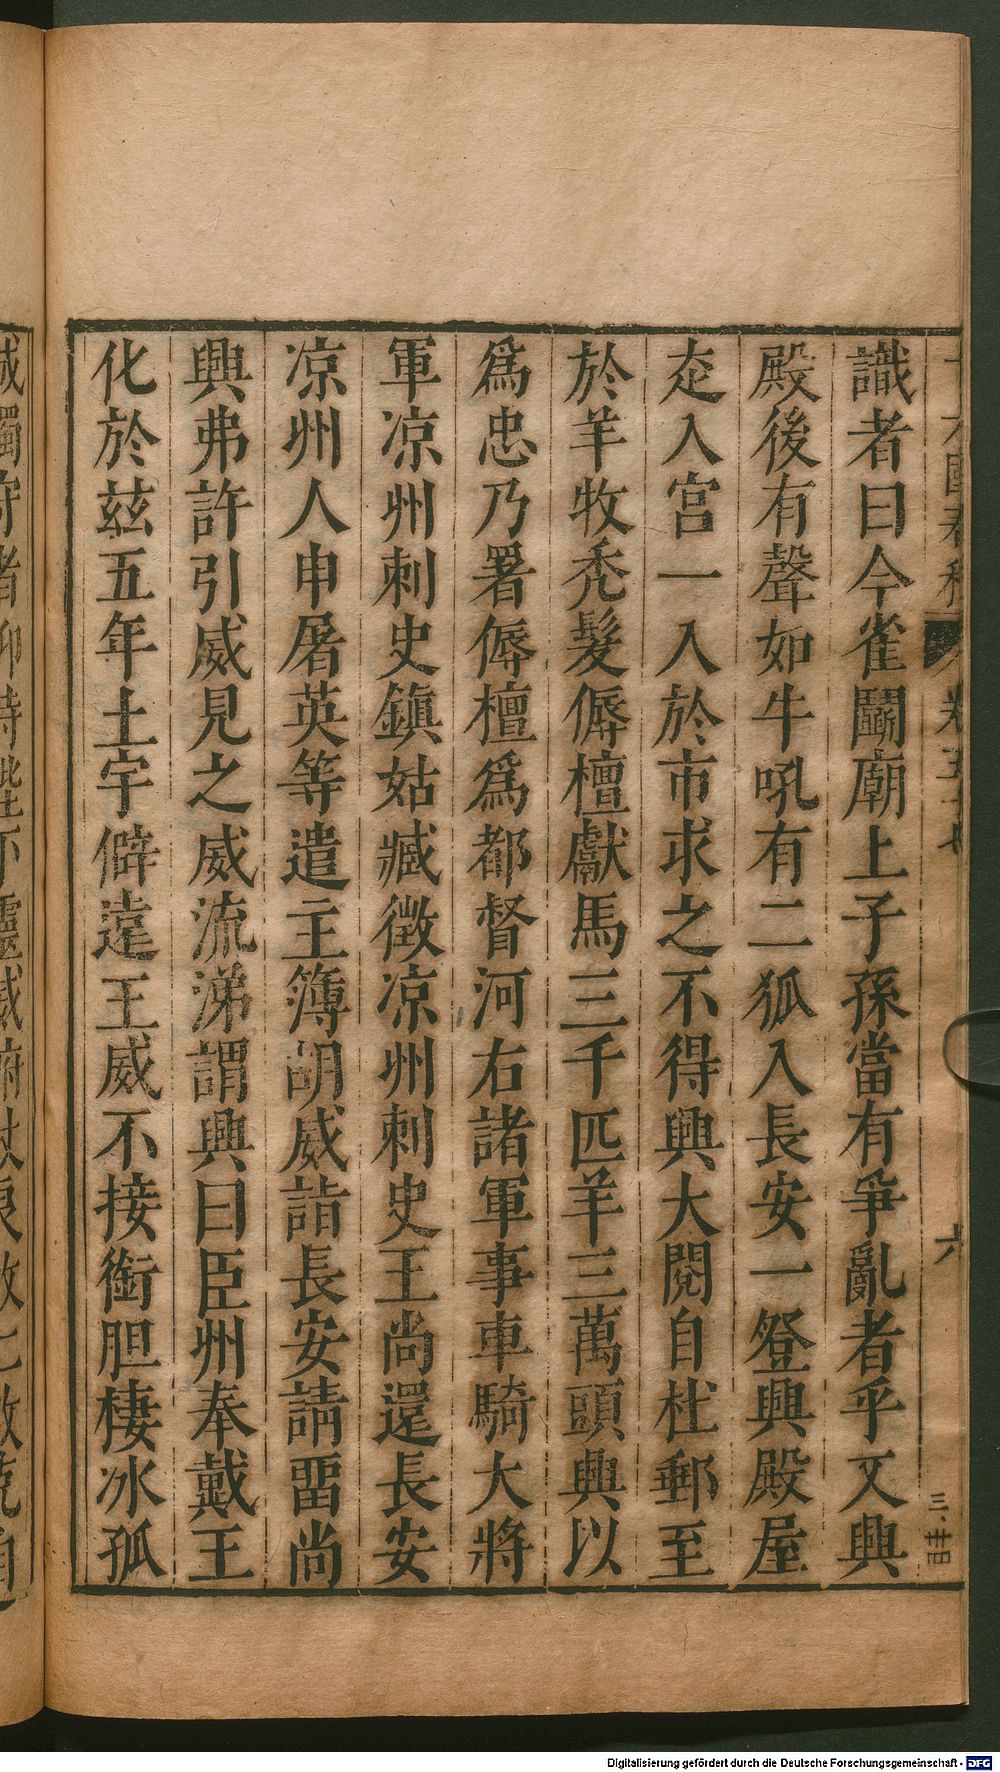 識者曰今雀鬭廟上子孫當有爭亂者乎又興
殿後有聲如牛吼有二狐入長安一登興殿屋
走入宮一入於市求之不得興大閱自杜郵至
於羊牧禿髮傉檀獻馬三千匹羊三萬頭興以
爲忠乃署傉檀爲都督河右諸軍事車騎大將
軍凉州刺史鎮姑臧徵凉州刺史王尚還長安
凉州人申屠英等遣主簿胡威詣長安請畱尚
興弗許引威見之威流涕謂興曰臣州奉戴王
化於茲五年土宇僻遠王威不接銜胆棲冰孤
國春秋 卷五十七
六
Digitalisierung gefördert durch die Deutsche Forschungsgemeinschaft - DFG